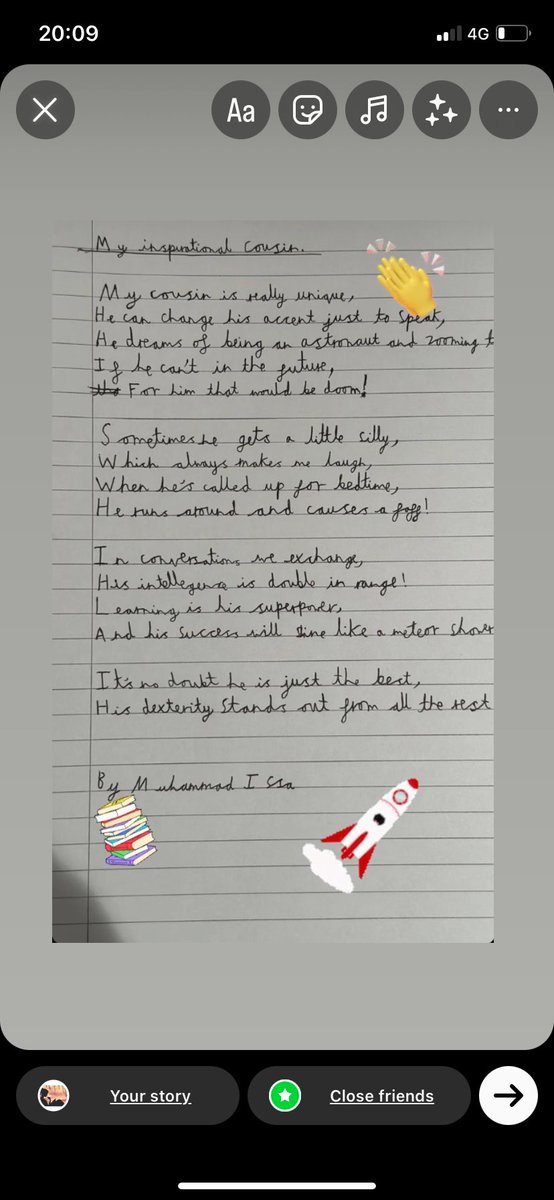 20:09
4G
Aa
My inspirational cousin.
My cousin is really unique,
He can change his accent just to speak,
He dreams of being an astronaut and zooming t
If he can't in the future,
For him that would be doom!
Sometimes he gets a little silly,
Which always makes me laugh,
When he's called up for bedtime,
He runs around and causes a gaff!
In conversations we exchange,
His intellegence is double in range!
Learning is his superpower,
And his success will shine like a meteor shower
It's no doubt he is just the best,
His dexterity stands out from all the rest
By Muhammad Issa
Your story
Close friends